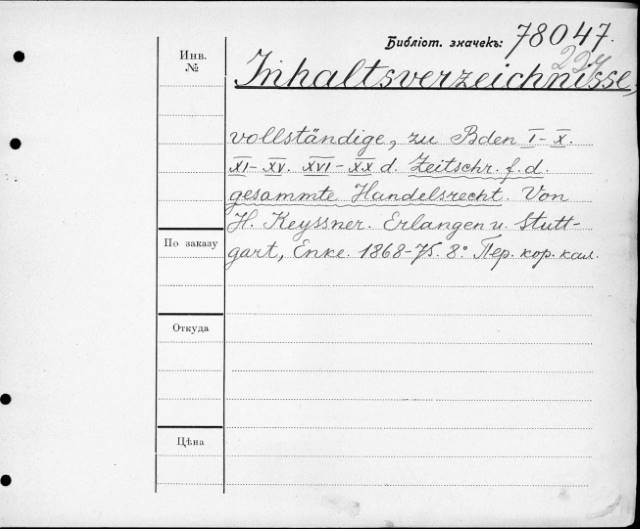 Библіот. значекъ: 78047.
227
Инв. №
Inhaltsverzeichnisse,
vollständige, zu Bden I-X.
XI-XV. XVI-XX d. Zeitschr. f. d.
gesammte Handelsrecht. Von
H. Keyssner. Erlangen u. Stutt-
gart, Enke. 1868-75. 8° Пер. кор. кал.
По заказу
Откуда
Цѣна